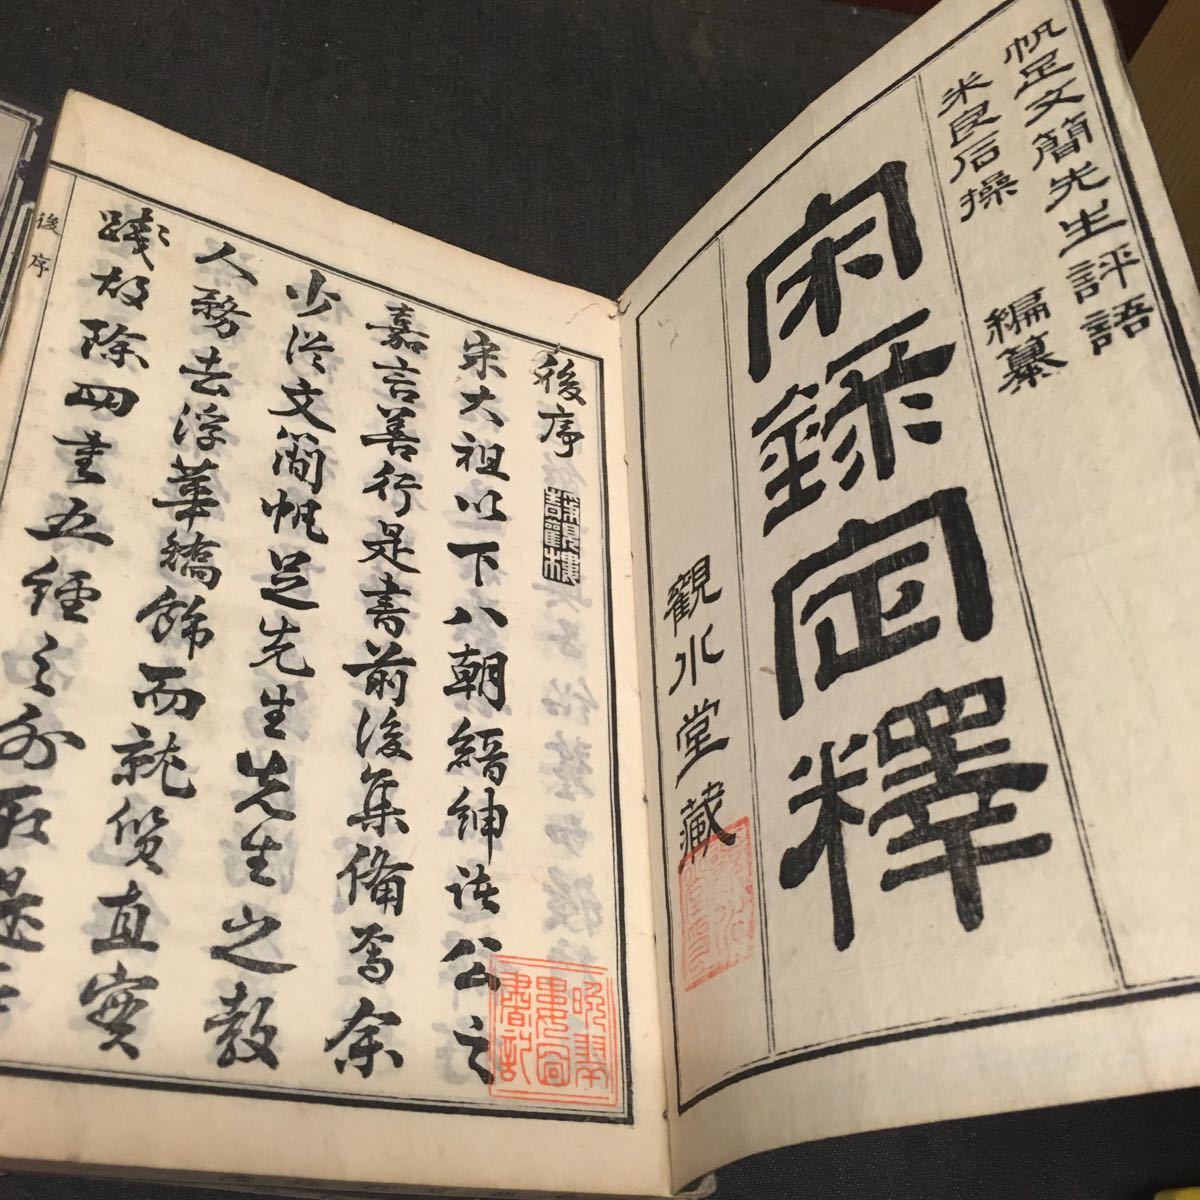 帆足文簡先生評語
米良石操 編纂
宋錄定釋
觀水堂藏
後序
靜觀樓
宋大祖以下八朝縉紳諸公之
嘉言善行是書前後集備焉余
少從文簡帆足先生先生之敎
人務去浮華矯飾而就質直實
踐故除四書五經之外
後序